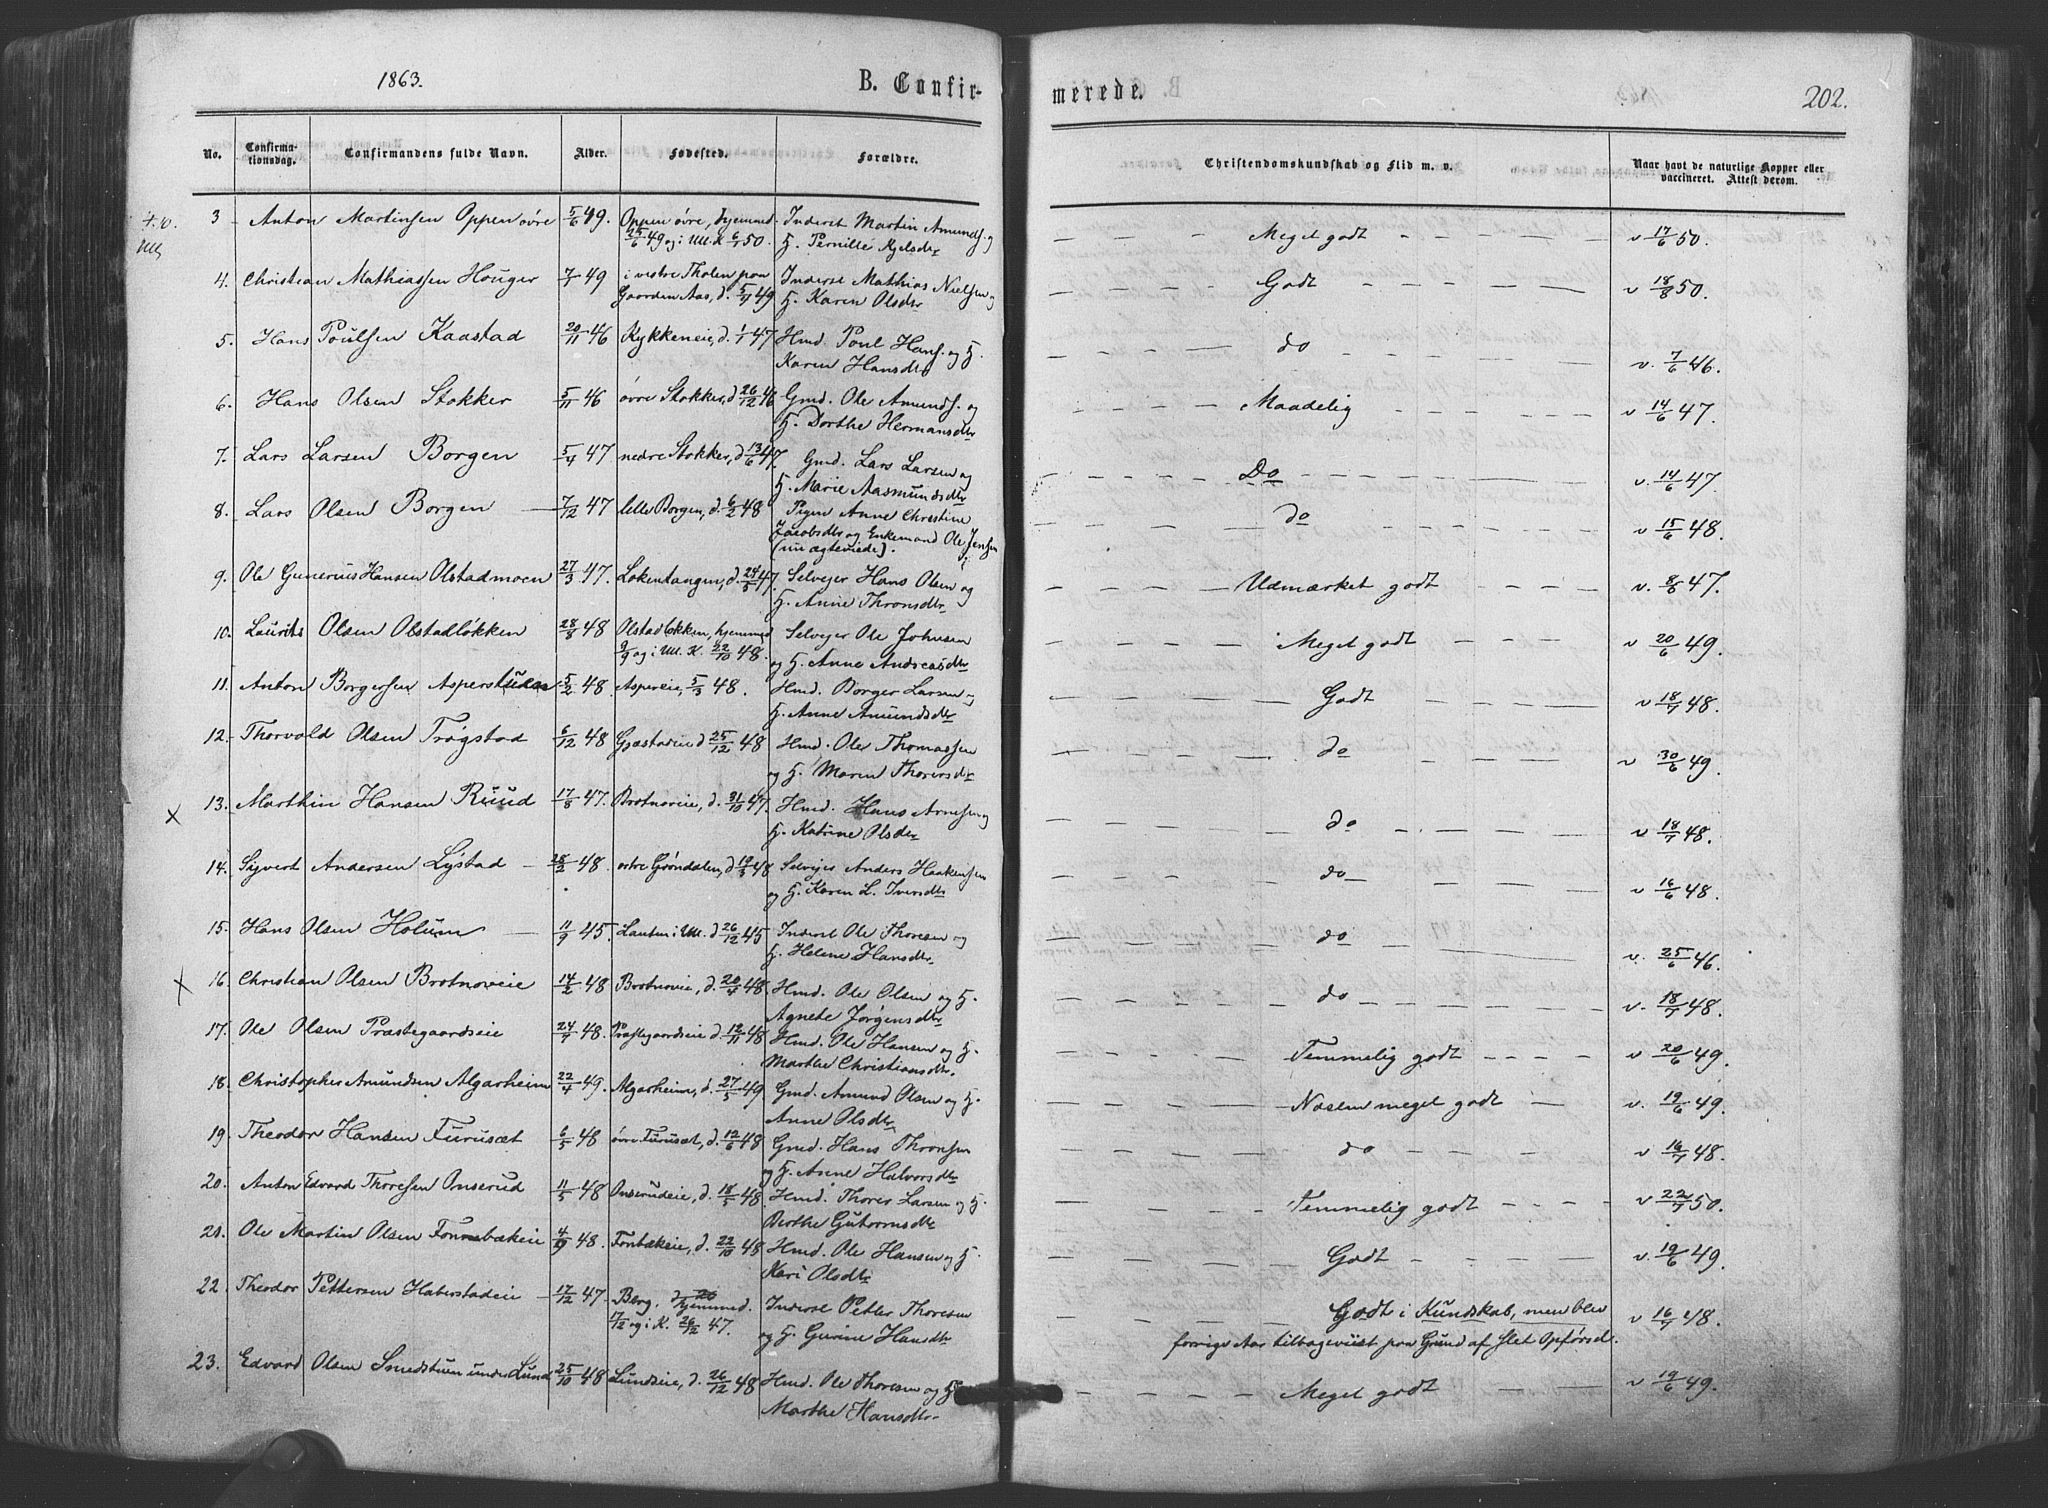 1863.
B. Confir-
merede.
202.
No. Confirmationsdag. Confirmandens fulde Navn. Alder. Fødested. Forældre. Christendomskundskab og Flid m. v. Naar havt de naturlige Kopper eller vaccineret. Attest derom.
3 Anton Martinsen Oppen øvre 5/6 49. Oppen øvre, hjemmed. Inderst Martin Amunds. og
25/6 49 og i Ull. K 6/1 50. H. Pernille Kjelsdr Meget godt v 17/6 50.
4. Christian Mathiassen Houger 7/1 49 i vestre Tholen paa Inderst Mathias Nielsen og
Gaarden Aas, d. 5/4 49 H. Karen Olsdr Godt v 18/8 50.
5. Hans Poulsen Kaastad 20/11 46 Kykkeneie, d. 1/1 47 Hmd. Poul Hans. og H.
Karen Hansdr do v. 7/6 46.
6. Hans Olsen Stokker 5/11 46 øvre Stokker, d 26/12 46 Gmd. Ole Amunds. og
H. Dorthe Hermansdr Maadelig v 14/6 47.
7. Lars Larsen Borgen 5/4 47 nedre Stokker, d 13/6 47. Gmd. Lars Larsen og
H. Marie Aasmundsdr Do v. 14/6 47.
8. Lars Olsen Borgen 7/12 47 lille Borgen, d. 6/2 48 Pigen Anne Christine
Jacobsdr og Enkemand Ole Jensen
(nu ægteviede). do v 15/6 48.
9. Ole Gunerius Hansen Olstadmoen 27/3 47. Løkentangen, d. 24/5 47. Selvejer Hans Olsen og
H. Anne Thronsdr Udmærket godt v. 8/8 47.
10. Laurits Olsen Olstadløkken 28/8 48 Olstadløkken, hjemmed Selvejer Ole Johnsen
9/9 og i Ull. K. 22/10 48. og H. Anne Andreasdr Meget godt v 20/6 49.
11. Anton Borgersen Asperstuen 5/2 48 Aspereie, 5/3 48. Hmd. Borger Larsen og
H. Anne Amundsdr Godt v 18/7 48.
12. Thorvald Olsen Trøgstad 6/12 48 Gjæstadeie d 25/12 48 Hmd. Ole Thomassen
og H. Maren Thorersdr do v 30/6 49.
13. Marthin Hansen Ruud 17/8 47. Brotnoveie, d. 31/10 47. Hmd. Hans Arnesen og
H. Katrine Olsdr do v 18/7 48.
14. Syvert Andersen Lystad 28/2 48 østre Grøndalen, d 19/3 48 Selvejer Anders Haakensen
og H. Karen L. Iversdr do v 16/6 48.
15. Hans Olsen Holum 11/9 45. Lauten i Ull. d 26/12 45 Inderst Ole Thoresen og
H. Helene Hansdr do v. 25/6 46.
16. Christian Olsen Brotnoveie 14/2 48 Brotnoveie, d. 20/4 48. Hmd. Ole Olsen og H.
Agnete Jørgensdr do v. 18/7 48.
17. Ole Olsen Præstegaardseie 24/9 48. Præstegaardseie d 12/11 48 Hmd. Ole Hansen og H.
Marthe Christiansdr. Temmelig godt v 20/6 49.
18. Christopher Amundsen Algarheim 22/4 49. Algarheim, d. 27/5 49 Gmd. Amund Olsen og H.
Anne Olsdr Næsten meget godt v. 19/6 49.
19. Theodor Hansen Furusæt 6/5 48 øvre Furusæt, d. 12/6 48 Gmd. Hans Thronsen
og H. Anne Halvorsdr do v 16/7 48.
20. Anton Edvard Thoresen Onserud 11/5 48 Onserudeie, d. 18/5 48 Hmd. Thorer Larsen og H.
Berthe Gutormsdr Temmelig godt v 22/7 50.
21. Ole Martin Olsen Fonnebækeie 48. Fonbækeie, d. 22/10 48 Hmd. Ole Hansen og H
Kari Olsdr Godt v. 19/6 49.
22. Theodor Pettersen Haberstadeie 17/12 47. Berg, hjemmed. Inderst Petter Thoresen
og i K. 26/12 47. og H. Gurine Hansdr Godt i Kundskab, men blev v 16/7 48.
forrige Aar tilbageviist paa Grund af slet Opførsel.
23. Edvard Olsen Smedstuen under Lund 25/10 48 Lundseie, d. 26/12 48 Hmd. Ole Thoresen og H.
Marthe Hansdr Meget godt v 19/6 49.